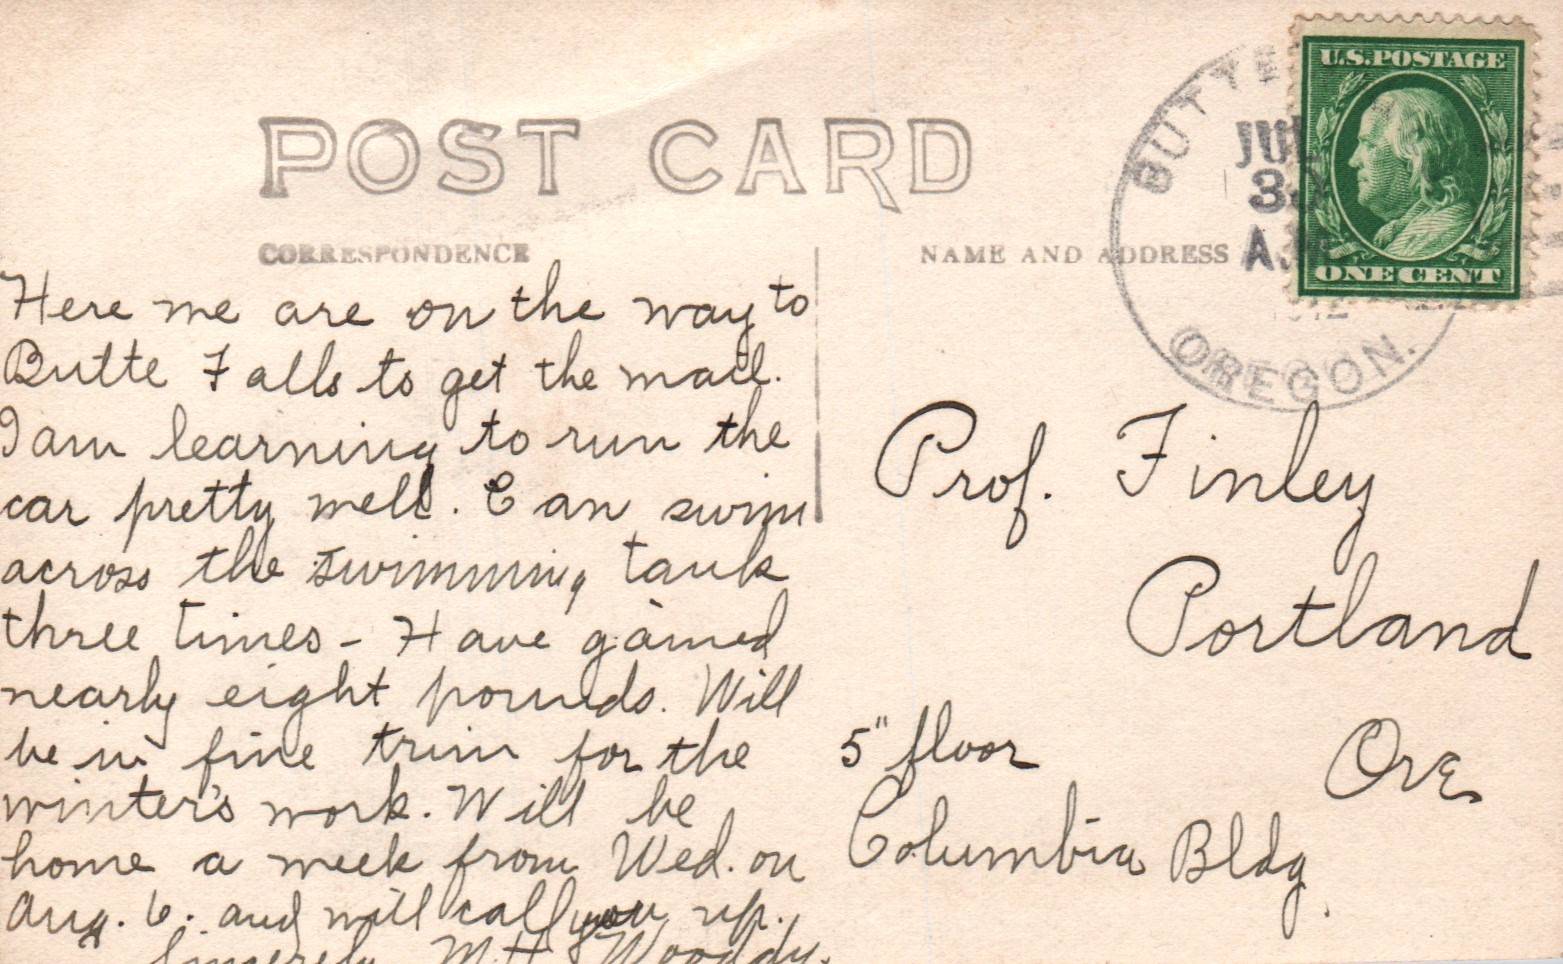 POST CARD
CORRESPONDENCE
NAME AND ADDRESS
BUTTE
JUL
3
A.M.
1912
OREGON.
U.S. POSTAGE
ONE CENT
Here we are on the way to
Butte Falls to get the mail.
I am learning to run the
car pretty well. Can swim
across the swimming tank
three times - Have gained
nearly eight pounds. Will
be in fine trim for the
winter's work. Will be
home a week from Wed. on
Aug. 6. and will call you up.
Sincerely M H Wooddy.
Prof. Finley
Portland
Ore
5" floor
Columbia Bldg.